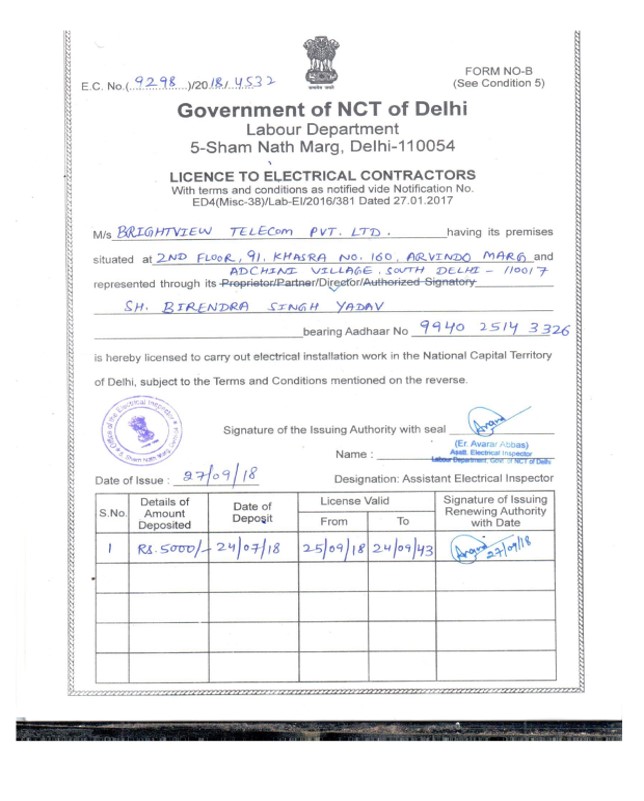 FORM NO-B
E.C. No.(9298)/2018/4532
(See Condition 5)
Government of NCT of Delhi
Labour Department
5-Sham Nath Marg, Delhi-110054
LICENCE TO ELECTRICAL CONTRACTORS
With terms and conditions as notified vide Notification No.
ED4(Misc-38)/Lab-EI/2016/381 Dated 27.01.2017
M/s BRIGHTVIEW TELECOM PVT. LTD. having its premises
situated at 2ND FLOOR, 91, KHASRA NO. 160, ARVINDO MARG and
ADCHINI VILLAGE, SOUTH DELHI - 110017
represented through its Proprietor/Partner/Director/Authorized Signatory
SH. BIRENDRA SINGH YADAV
bearing Aadhaar No 9940 2514 3326
is hereby licensed to carry out electrical installation work in the National Capital Territory
of Delhi, subject to the Terms and Conditions mentioned on the reverse.
Signature of the Issuing Authority with seal
(Er. Avarar Abbas)
Name : Asstt. Electrical Inspector
Labour Department, Govt. of NCT of Delhi
Date of Issue : 27/09/18 Designation: Assistant Electrical Inspector
S.No. Details of Amount Deposited Date of Deposit License Valid From To Signature of Issuing Renewing Authority with Date
1 RS. 5000/- 24/07/18 25/09/18 24/09/43 27/09/18